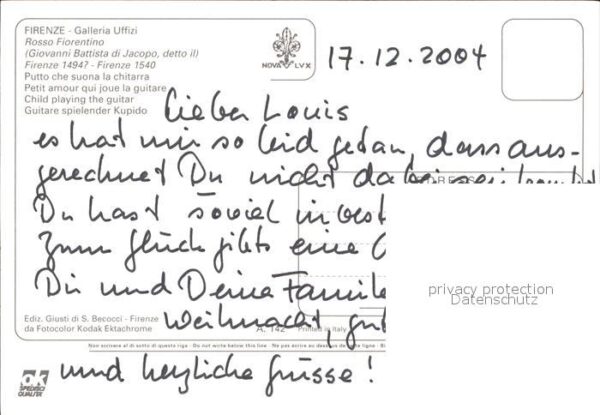 FIRENZE - Galleria Uffizi
Rosso Fiorentino
(Giovanni Battista di Jacopo, detto il)
Firenze 1494? - Firenze 1540
Putto che suona la chitarra
Petit amour qui joue la guitare
Child playing the guitar
Guitare spielender Kupido
NOVA LVX
17.12.2004
Lieber Louis
es hat mir so leid getan, dass aus-
gerechnet Du nicht dabei sein
Du hast soviel
Zum Glück gibts eine
Dir und Deine Familie
Weihnacht,
und herzliche Grüsse!
privacy protection
Datenschutz
Ediz. Giusti di S. Becocci - Firenze
da Fotocolor Kodak Ektachrome
A. 142 Printed in Italy
Non scrivere al di sotto di questa riga - Do not write below this line - Ne pas écrire au dessous de cette ligne - Bi
ok
SPEDISCI
QUALITÀ